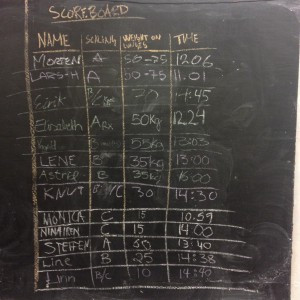 SCOREBOARD
NAME SCALING WEIGHT ON TIME
MORTEN A 50-75 12.06
LARS-H A 50-75 11.01
Eirik 
Elisabeth A RX 50kg 12.24
55kg
LENE B 35kg 13:00
Astrid B 35kg 15:00
KNUT 30 14:30
MONICA C 15 10:59
C 15 14:00
STEFFEN A 13:40
Line B 25 14:38
B/C 10 14:40